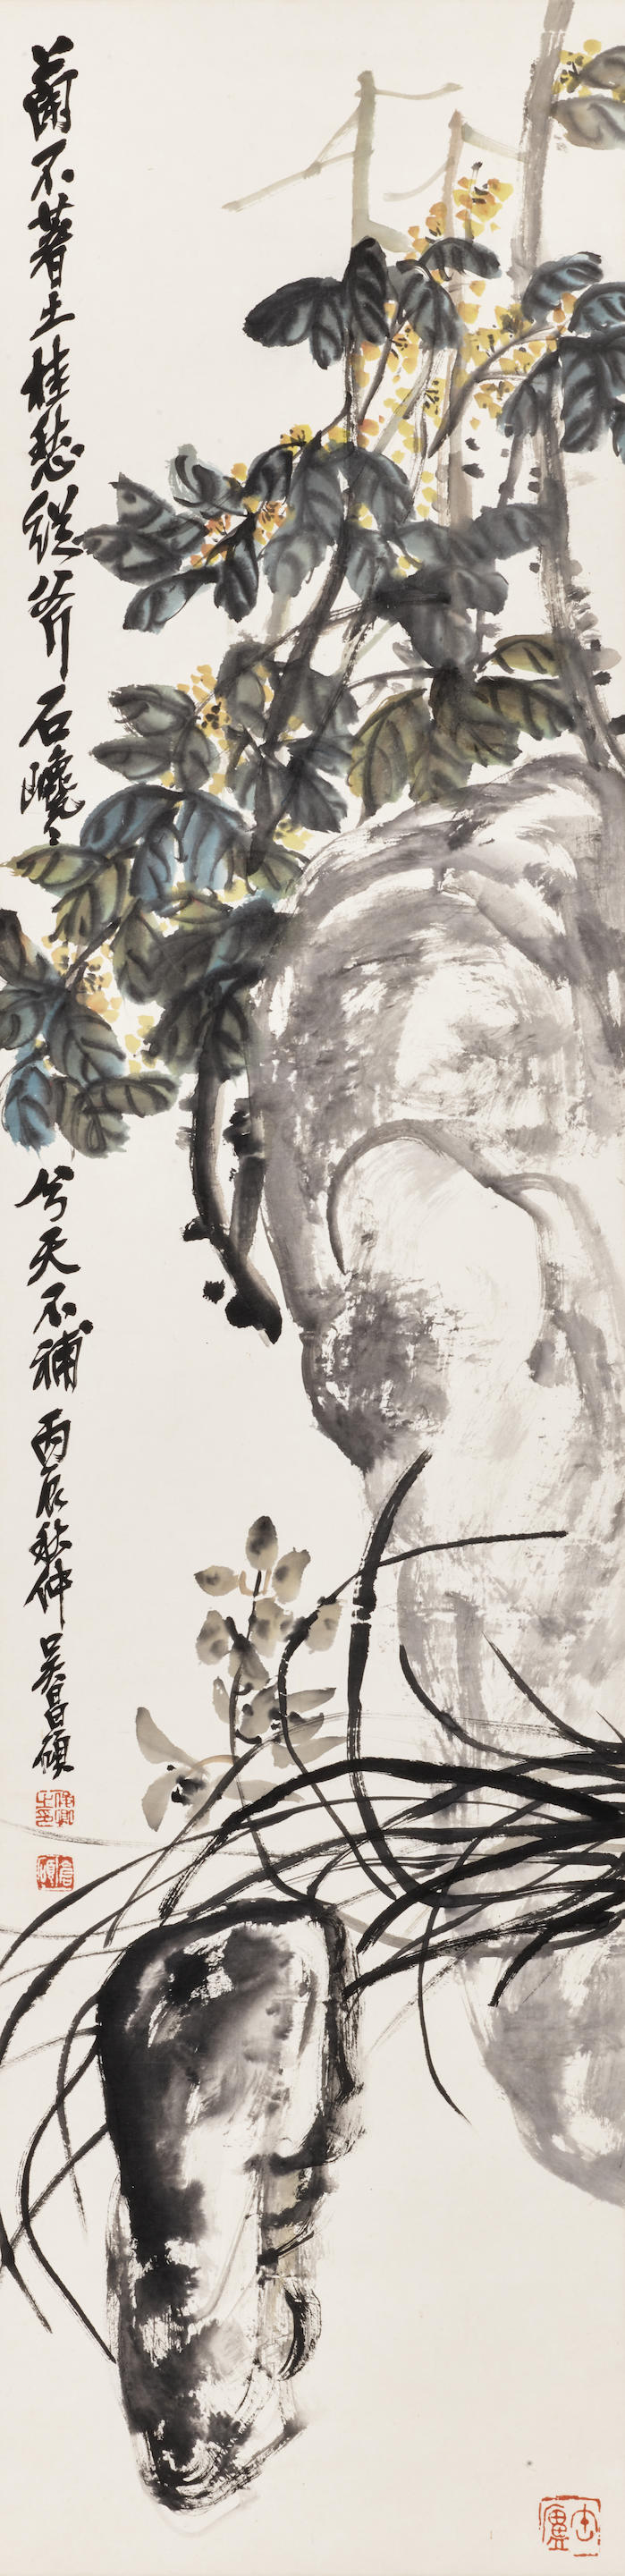 蘭不著土桂愁從斧石巉〻
兮天不補
丙辰秋仲
吳昌碩
俊卿之印
倉碩
缶廬